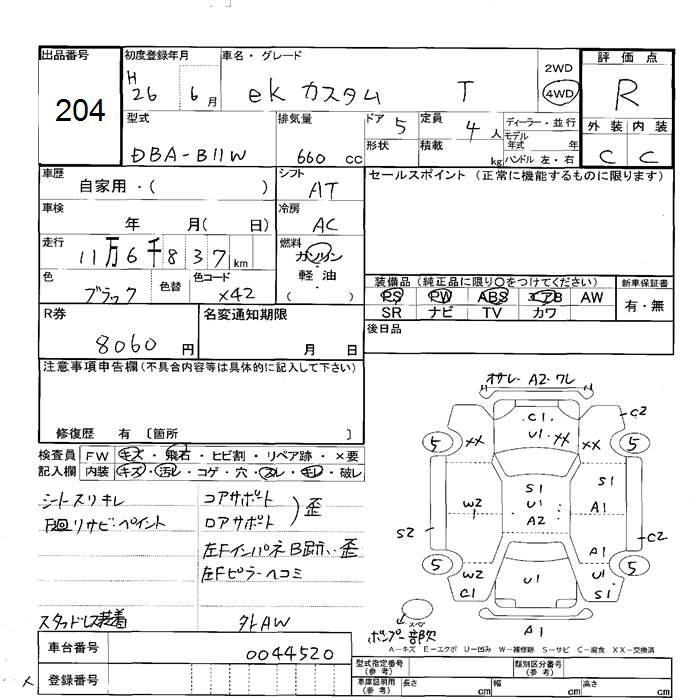 出品番号 204
初度登録年月 H 26 6月
車名・グレード ek カスタム T
2WD 4WD
評価点 R
外装 内装
C C
型式 DBA-B11W
排気量 660 cc
ドア 5
形状
定員 4 人
積載 kg
ディーラー・並行
モデル年式 年
ハンドル 左・右
車歴 自家用・( )
シフト AT
セールスポイント (正常に機能するものに限ります)
車検 年 月( 日)
冷房 AC
走行 11万6千837km
燃料 ガソリン・軽・油
( )
色 ブラック 色替 色コード X42
装備品 (純正品に限り○をつけてください)
PS PW ABS エアB AW
SR ナビ TV カワ
新車保証書
有・無
R券 8060 円
名変通知期限 月 日
後日品
注意事項申告欄(不具合内容等は具体的に記入して下さい)
修復歴 有 〔箇所 〕
検査員記入欄
FW キズ・飛石・ヒビ割・リペア跡・×要
内装 キズ・汚レ・コゲ・穴・スレ・キレ・破レ
シートスリキレ
下廻リサビ・ペイント
コアサポート
ロアサポート 歪
左Fインパネ
左Fピラーヘコミ
スタッドレス装着
外しAW
A2 ワレ
C1
U1 XX
XX XX C2
5 5
S1
U1
A2
W2 S1
A1
S2 C2
A1
5 5
W2
C1
U1
U1
S1
A1
スペア
A-キズ E-エクボ U-凹み W-補修跡 S-サビ C-腐食 XX-交換済
車台番号 0044520
登録番号
型式指定番号(参考)
類別区分番号(参考)
車庫証明用(参考) 長さ cm 幅 cm 高さ cm